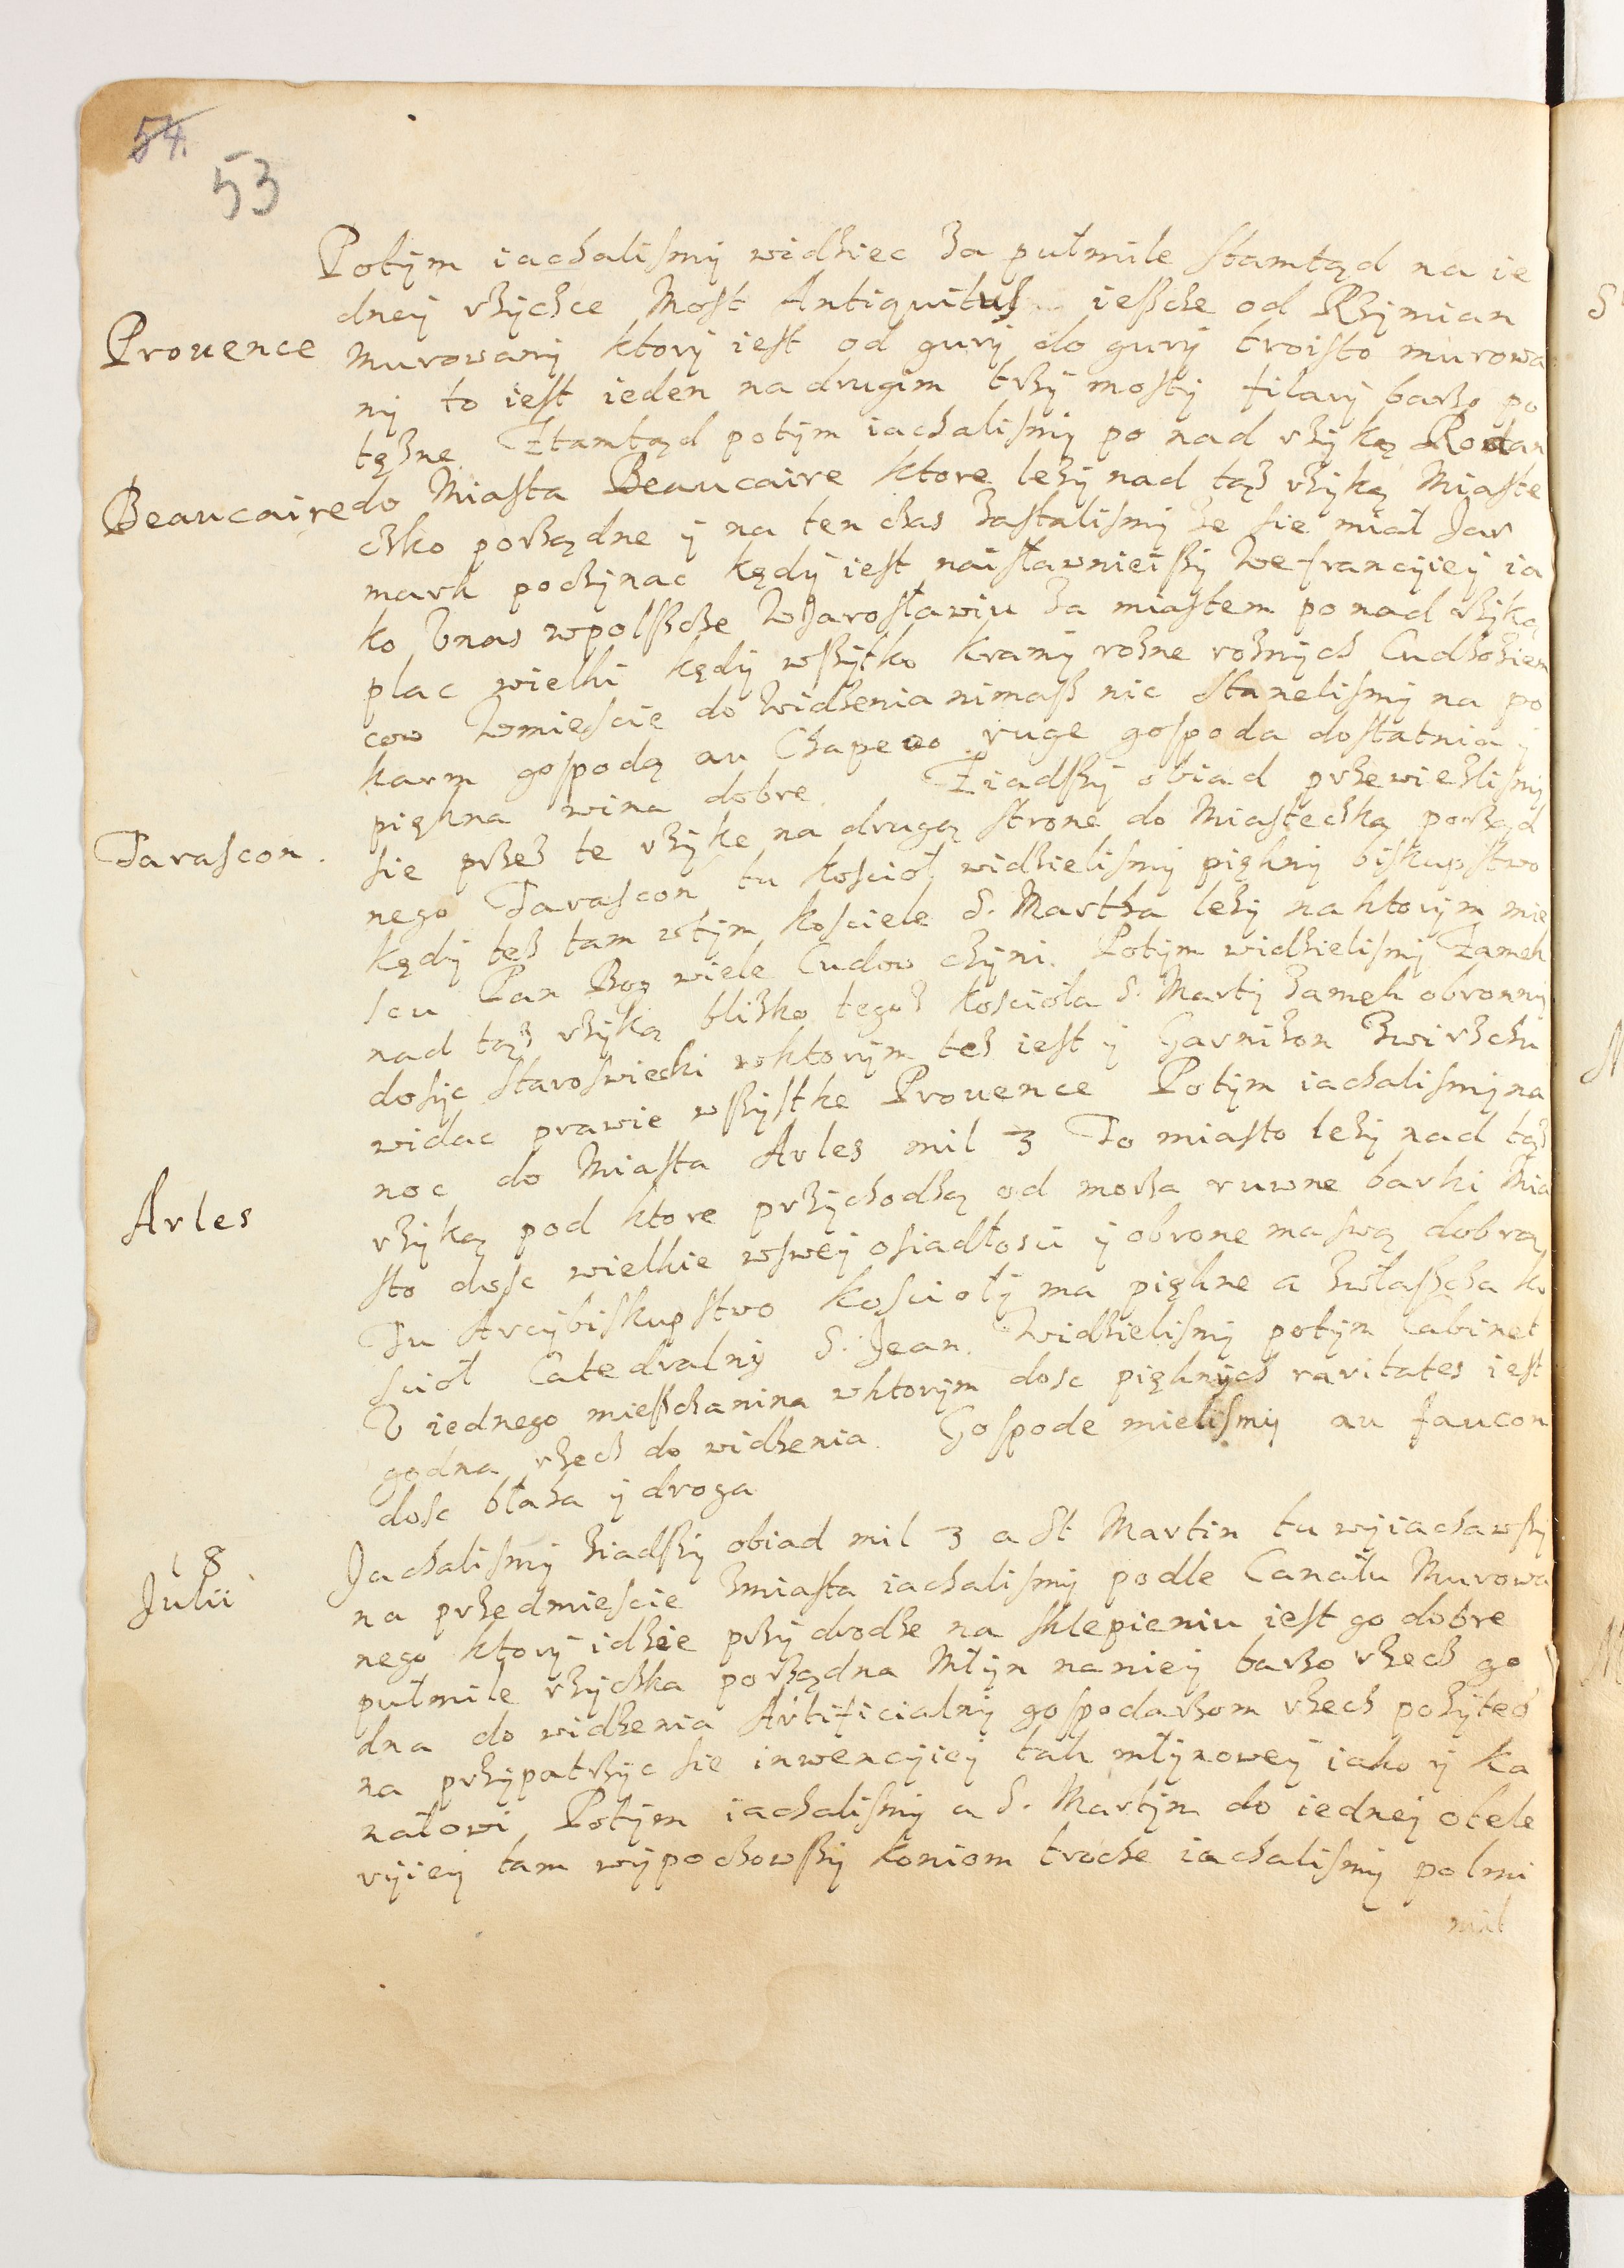 54.
53
Potÿm iachalismÿ widziec za pułmile stamtąd na ie
dneÿ rzÿchce Most Antiquitus iessche od Rzÿmian
Prouence
murowanÿ ktorÿ iest od gurÿ do gurÿ troisto murowa
nÿ to iest ieden na drugim trzÿ mostÿ filarÿ barzo po
tęzne Ztamtąd potÿm iachalismÿ po nad rzÿką Rodan
Beaucaire
do Miasta Beaucaire ktore lezÿ nad tąz rzÿką Miaste
czko porządne ÿ na ten czas zastalismÿ ze sie miał Jar
mark poczÿnac kędÿ iest naisławnieiszÿ we francÿieÿ ia
ko Unas wpolszcze wJarosławiu za miastem ponad rzÿką
plac wielki kędÿ wszÿtko kramÿ rozne roznÿch Cudzoziem
cow Wmiescie do Widzenia nimasz nic Stanelismÿ na po
karm gospodą au Chapeoo ruge gospoda dostatnia ÿ
piękna wina dobre. Ziadszÿ obiad przewiezlismÿ
Tarascon.
sie przez te rzÿke na drugą strone do Miasteczka porząd
nego Tarascon tu kosciół widzielismÿ pięknÿ biskupstwo
kędÿ tez tam wtÿm kosciele S. Martha lezÿ naktorÿm mie
scu Pan Bog wiele Cudow czÿni. Potÿm widzielismÿ Zamek
nad tąz rzÿką blizko tegoz kosciola S. Martÿ zamek obronnÿ
dosÿc staroswiecki wktorÿm tez iest ÿ Garnizon Zwirzchu
widac prawie wszÿstke Prouence Potÿm iachalismÿ na
noc do Miasta Arles mil 3 To miasto lezÿ nad tąz
Arles
rzÿką pod ktore przÿchodzą od morza ruwne barki Mia
sto dosc wielkie wsweÿ osiadłosci ÿ obrone ma swą dobrą
Tu Arcÿbiskupstwo kosciołÿ ma piękne a zwłaszcza ko
sciół Catedralnÿ S. Jean. Widzielismÿ potÿm Cabinet
U iednego mieszchanina wktorÿm dosc pięknÿch raritates iest
godna rzech do widzenia. Gospode mielismÿ au faucon
dosc błaha ÿ droga
18
Julii
Jachalismÿ ziadszÿ obiad mil 3 a St Martin tu wÿiachawszÿ
na przedmiescie zmiasta iachalismÿ podle Canału Murowa
nego ktorÿ idzie przÿ drodze na sklepieniu iest go dobre
pułmile rzÿczka porządna Młÿn na nieÿ barzo rzech go
dna do widzenia Artificialnÿ gospodarzom rzech pozÿtecz
na przÿpatrzÿc sie inwencÿieÿ tak młÿnoweÿ iako ÿ ka
nałowi Potÿm iachalismÿ a S. Martÿn do iedneÿ otele
rÿieÿ tam wÿpochowszÿ koniom troche iachalismÿ polmi
mil